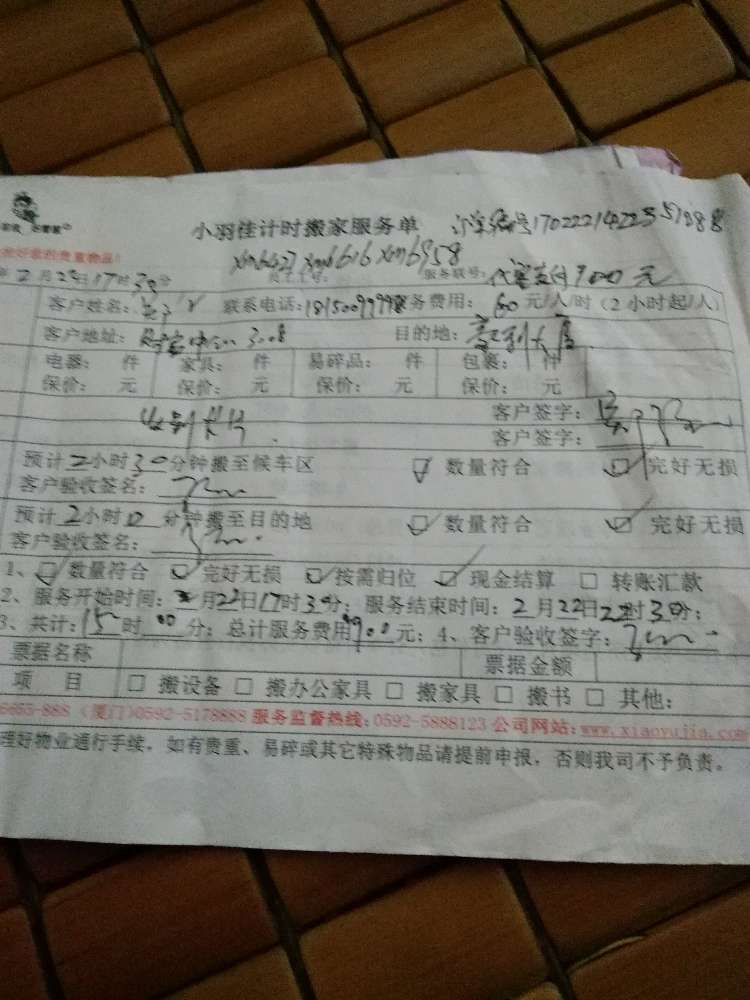 小羽佳计时搬家服务单 订单编号17022214223551288
xm6627 xm6616 xm6958
服务联号: 代
年2月22日17时30分
客户姓名: 联系电话:18150099998 务费用: 60元/人/时(2小时起/人)
客户地址: 3.08 目的地: 大厦
电器: 件 家具: 件 易碎品: 件 包裹: 件
保价: 元 保价: 元 保价: 元 保价: 元
收到 客户签字:
客户签字:
预计2小时30分钟搬至候车区 数量符合 完好无损
客户验收签名:
预计2小时 分钟搬至目的地 数量符合 完好无损
客户验收签名:
1、 数量符合 完好无损 按需归位 现金结算 转账汇款
2、服务开始时间: 月22日17时30分; 服务结束时间: 2月22日22时30分;
3、共计:15时00分; 总计服务费用900元; 4、客户验收签字:
票据名称 票据金额
项 目 搬设备 搬办公家具 搬家具 搬书 其他:
6655-888 (厦门)0592-5178888 服务监督热线:0592-5888123 公司网站:www.xiaoyujia.com
理好物业通行手续,如有贵重、易碎或其它特殊物品请提前申报,否则我司不予负责。